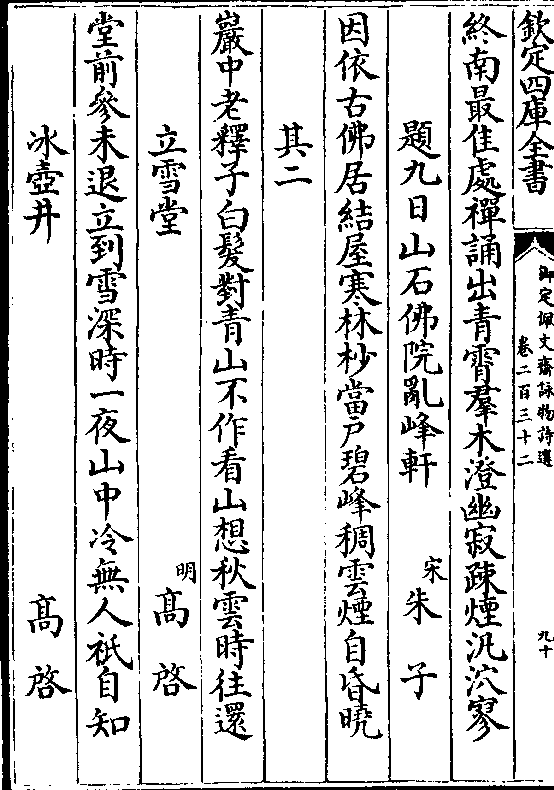 欽定四庫全書
御定佩文齋詠物詩選
卷二百三十二
九十
終南最佳處禪誦出青霄羣木澄幽寂疎煙汎泬寥
題九日山石佛院亂峰軒 宋 朱子
因依古佛居結屋寒林杪當戸碧峰稠雲煙自昏曉
其二
巖中老釋子白髮對青山不作看山想秋雲時往還
立雪堂 明 高啓
堂前參未退立到雪深時一夜山中冷無人祇自知
冰壺井 高啓